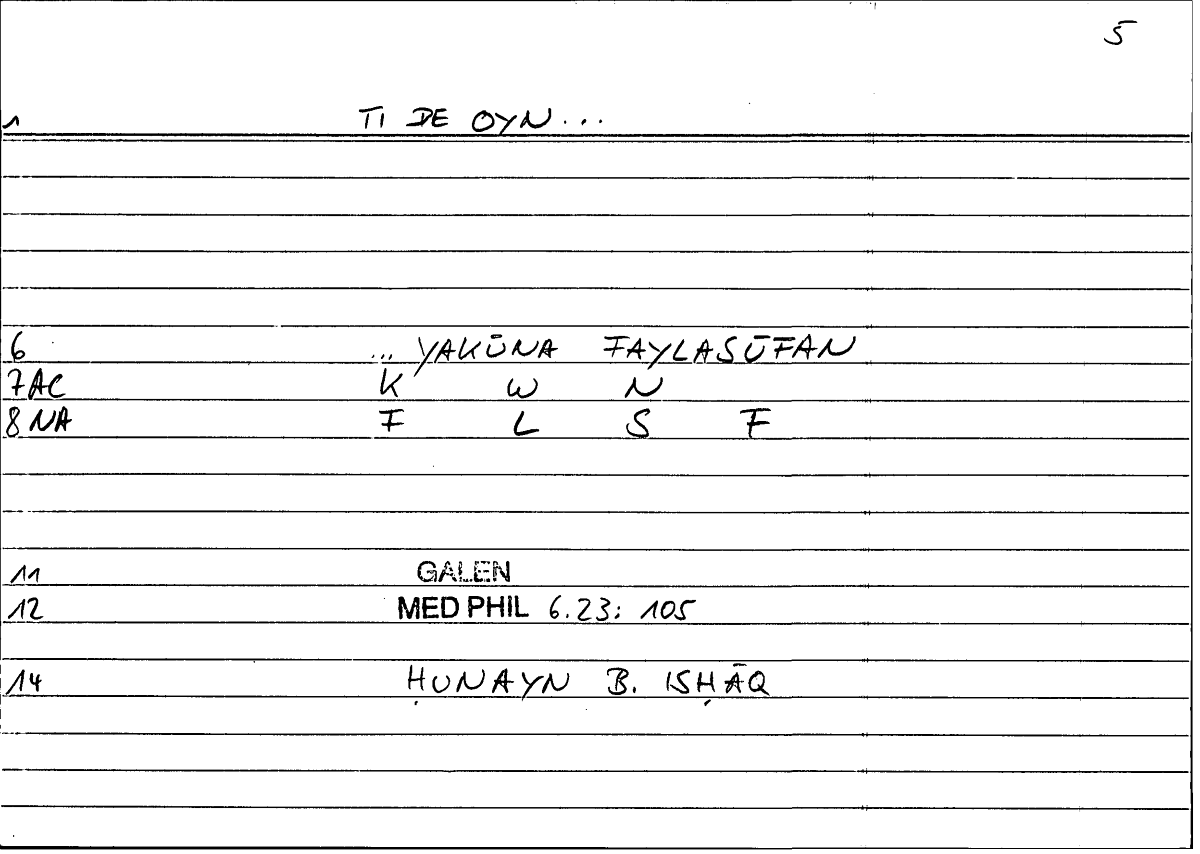 5
1 TI DE OYN...
6 ... YAKŪNA FAYLASŪFAN
7AC K W N
8 NA F L S F
11 GALEN
12 MED PHIL 6.23: 105
14 ḤUNAYN B. ISḤĀQ